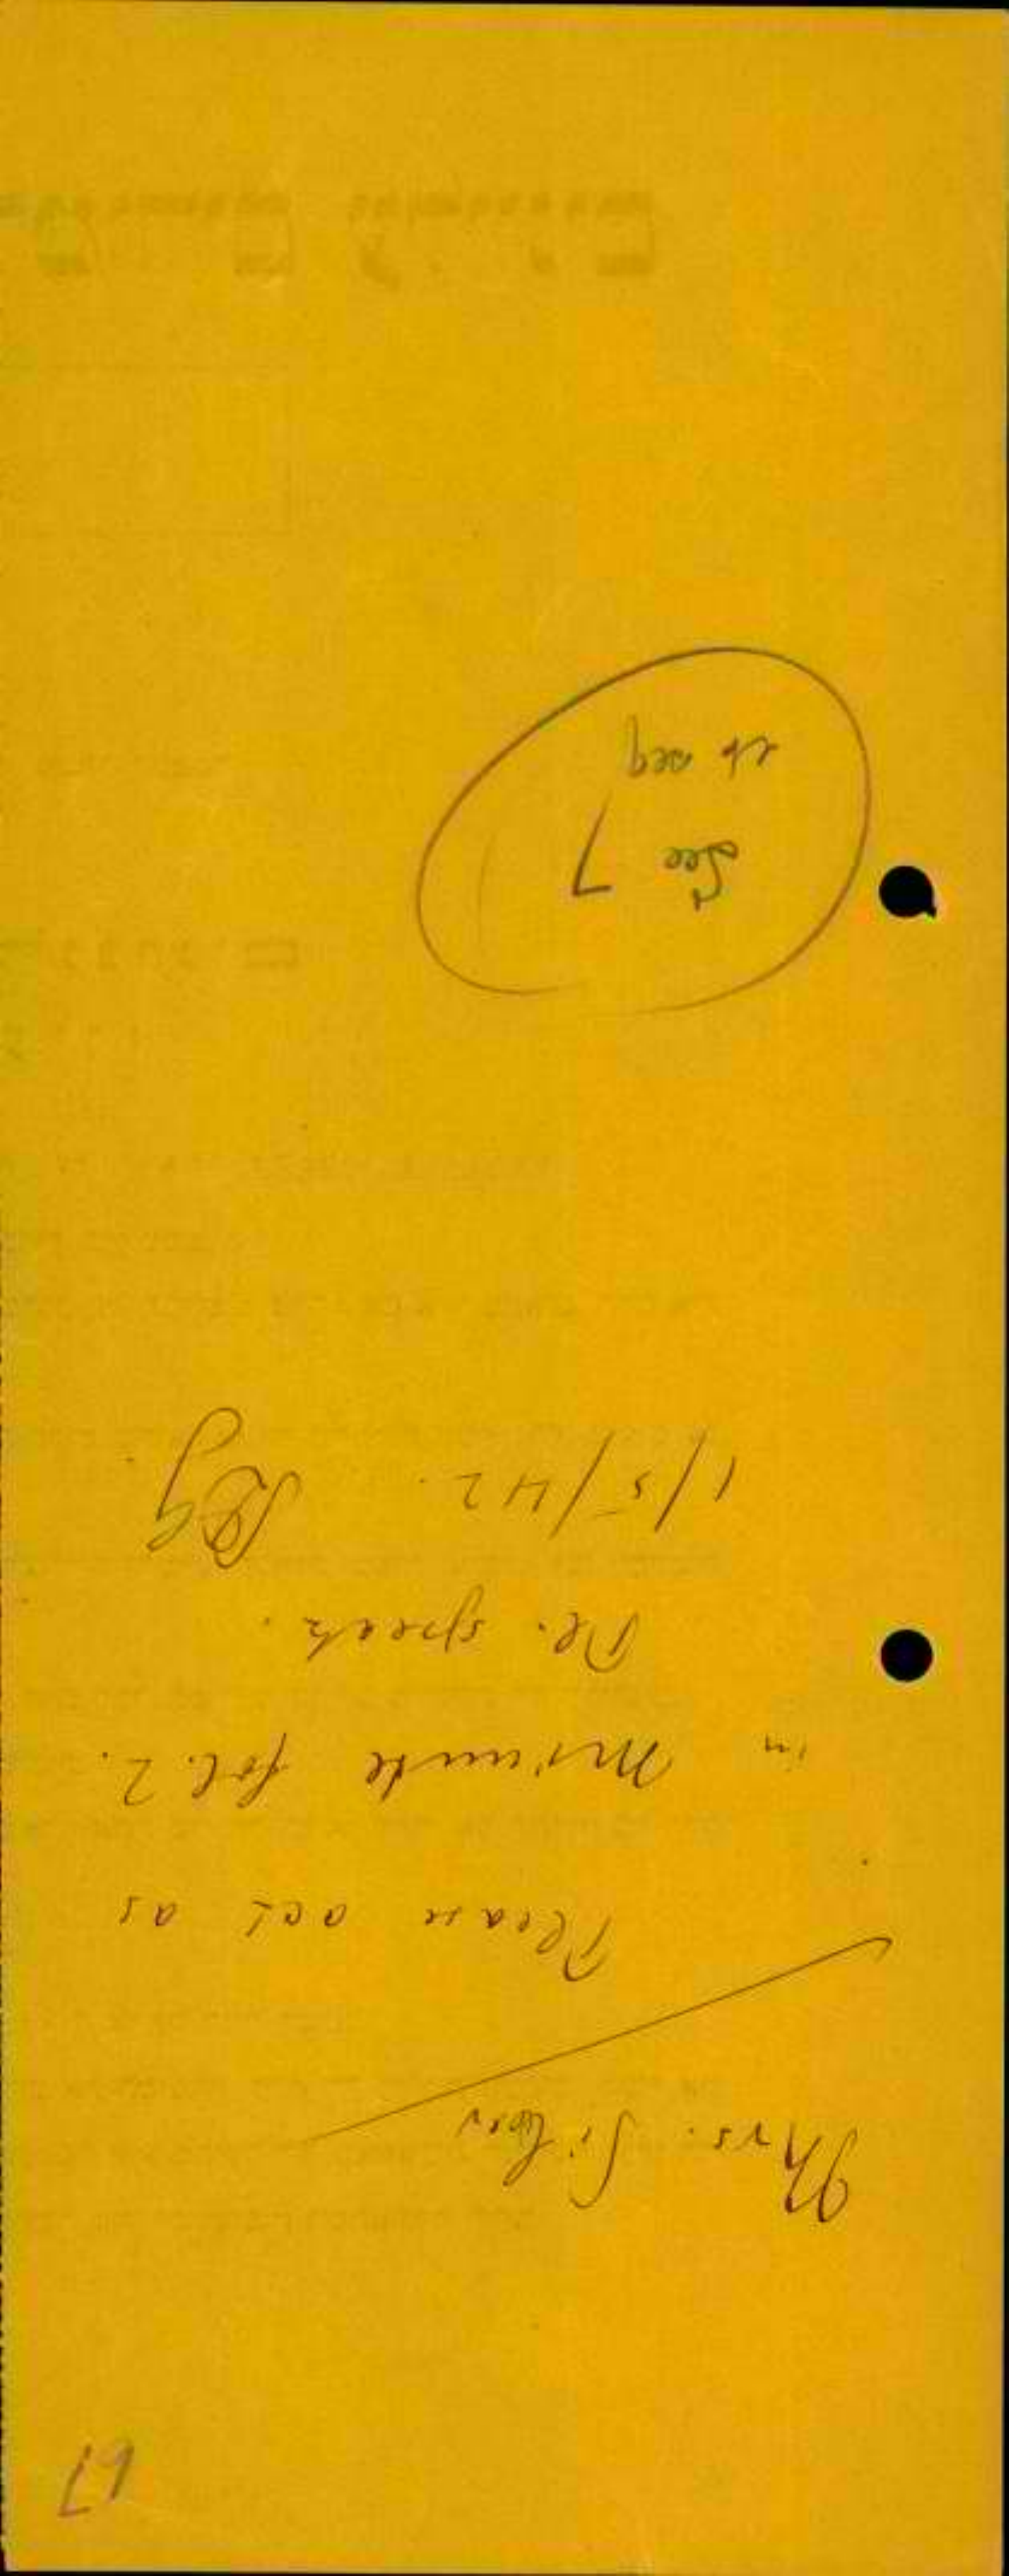 67
Mrs. Silver
Please act as
in Minute fol. 2.
Pl. speak.
1/5/42.
See 7
et seq